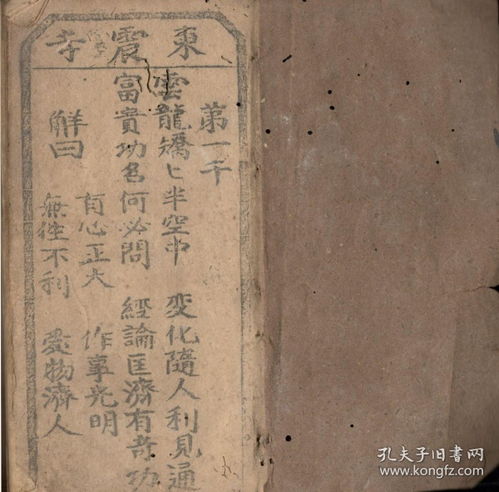 東震寺
第一千
雲龍矯〻半空中 變化隨人利見通
富貴功名何必問 經論匡濟有奇功
解曰
有心正大 作事光明
無往不利 愛物濟人
孔夫子旧書网
www.kongfz.com